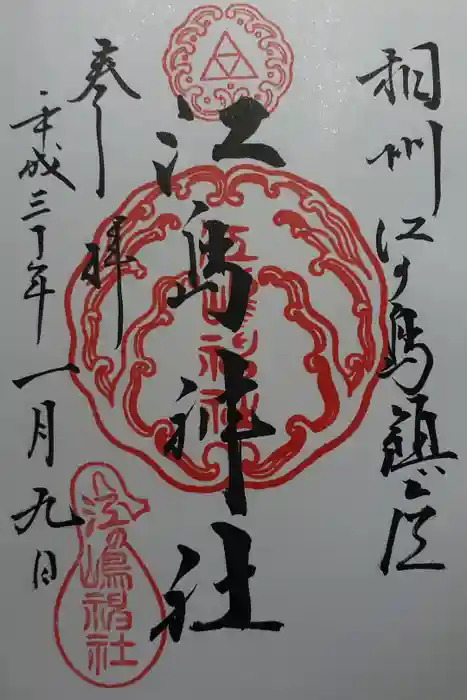 相州江ノ島鎮座
江島神社
江島神社
奉拝
平成三十年一月九日
江嶋神社